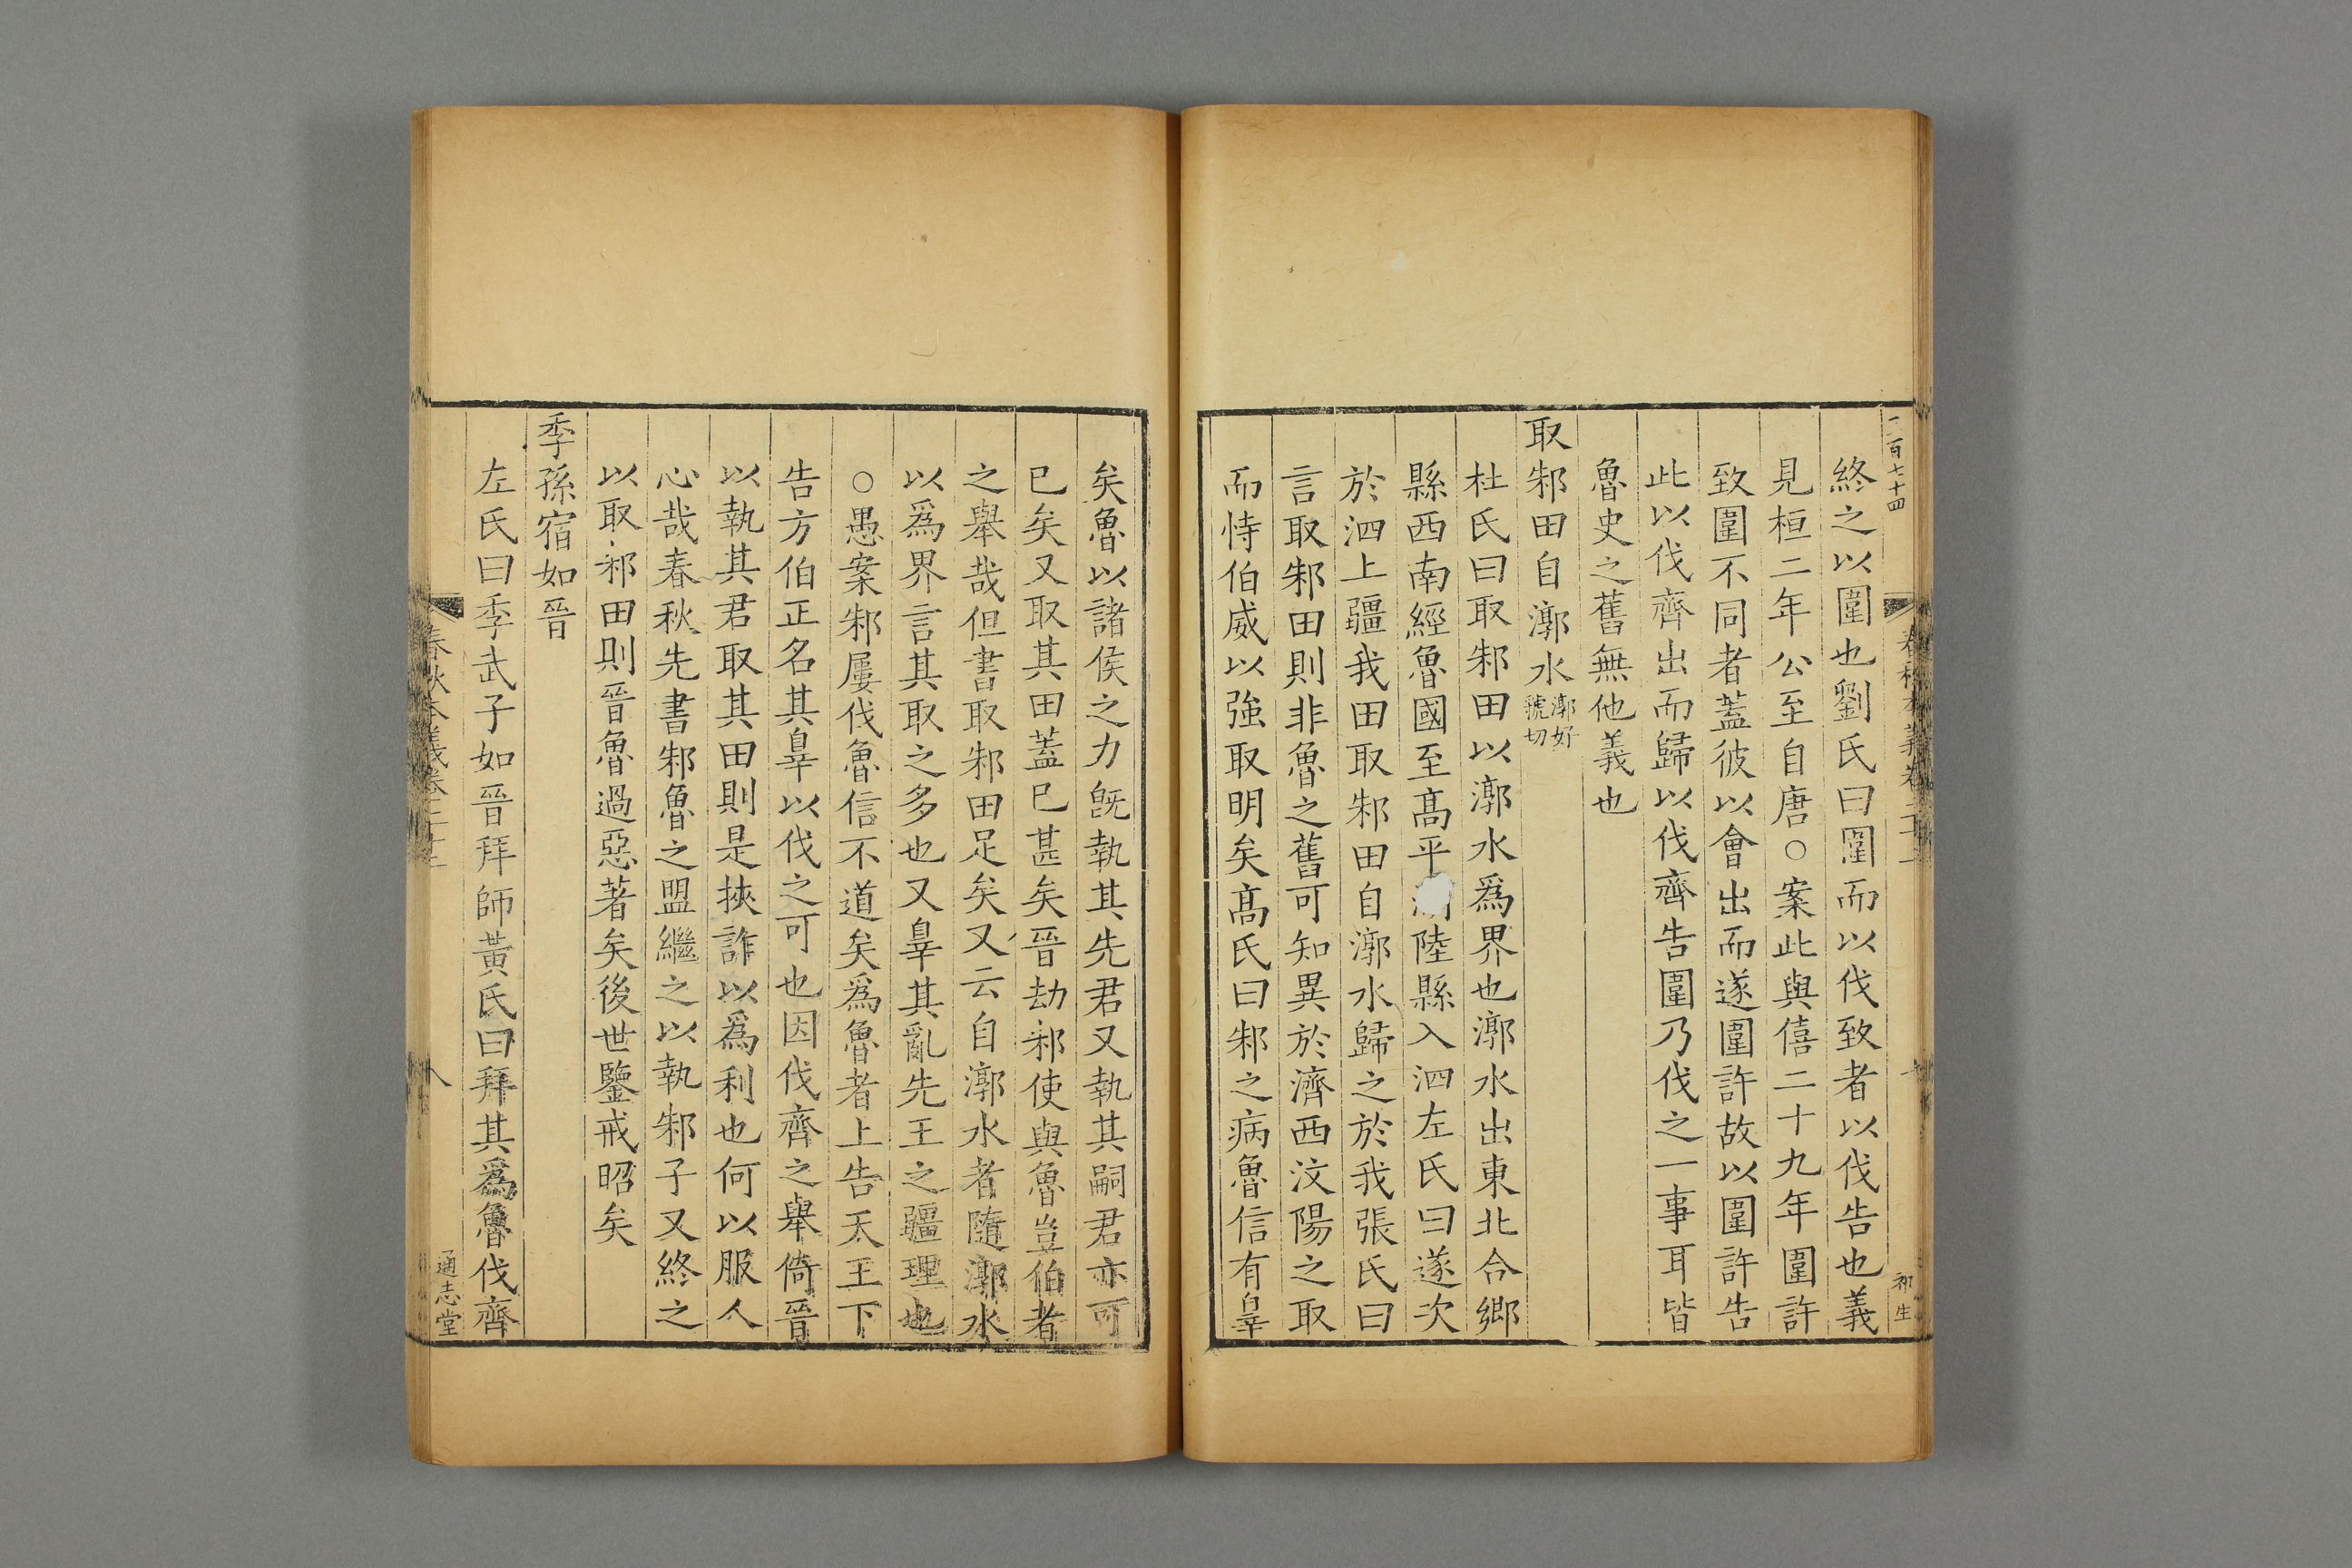 二百七十四
終之以圍也劉氏曰圍而以伐致者以伐告也義
見桓二年公至自唐○案此與僖二十九年圍許
致圍不同者蓋彼以會出而遂圍許故以圍許告
此以伐齊出而歸以伐齊告圍乃伐之一事耳皆
魯史之舊無他義也
取邾田自漷水漷好
號切
杜氏曰取邾田以漷水爲界也漷水出東北合鄉
縣西南經魯國至髙平湖陸縣入泗左氏曰遂次
於泗上疆我田取邾田自漷水歸之於我張氏曰
言取邾田則非魯之舊可知異於濟西汶陽之取
而恃伯威以強取明矣髙氏曰邾之病魯信有辠
矣魯以諸侯之力旣執其先君又執其嗣君亦可
已矣又取其田蓋已甚矣晉劫邾使與魯豈伯者
之舉哉但書取邾田足矣又云自漷水者隨漷水
以爲界言其取之多也又辠其亂先王之疆理也
○愚案邾屢伐魯信不道矣爲魯者上告天王下
告方伯正名其辠以伐之可也因伐齊之舉倚晉
以執其君取其田則是挾詐以爲利也何以服人
心哉春秋先書邾魯之盟繼之以執邾子又終之
以取邾田則晉魯過惡著矣後世鑒戒昭矣
季孫宿如晉
左氏曰季武子如晉拜師黃氏曰拜其爲魯伐齊
春秋本義卷二十二
八
通志堂